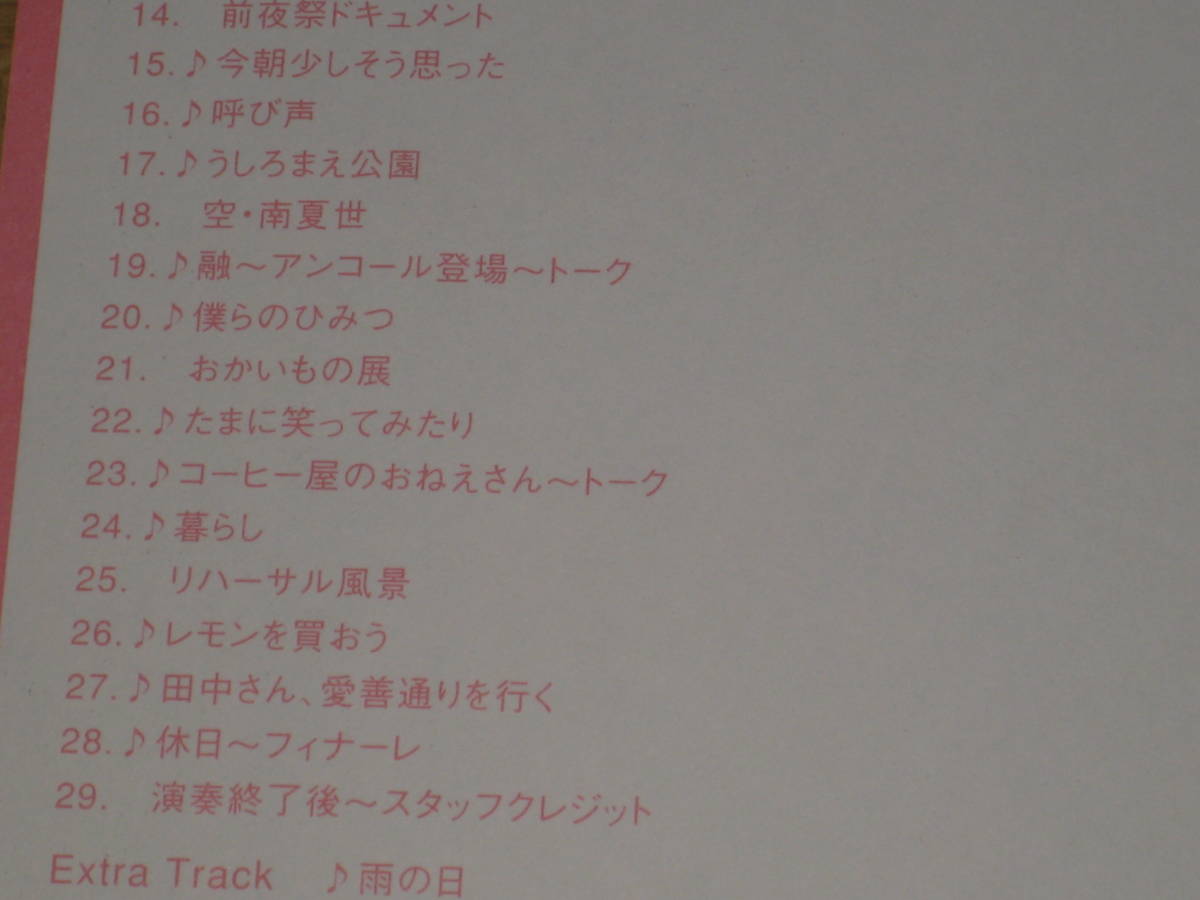 14.　前夜祭ドキュメント
15.♪今朝少しそう思った
16.♪呼び声
17.♪うしろまえ公園
18.　空・南夏世
19.♪融～アンコール登場～トーク
20.♪僕らのひみつ
21.　おかいもの展
22.♪たまに笑ってみたり
23.♪コーヒー屋のおねえさん～トーク
24.♪暮らし
25.　リハーサル風景
26.♪レモンを買おう
27.♪田中さん、愛善通りを行く
28.♪休日～フィナーレ
29.　演奏終了後～スタッフクレジット
Extra Track　♪雨の日